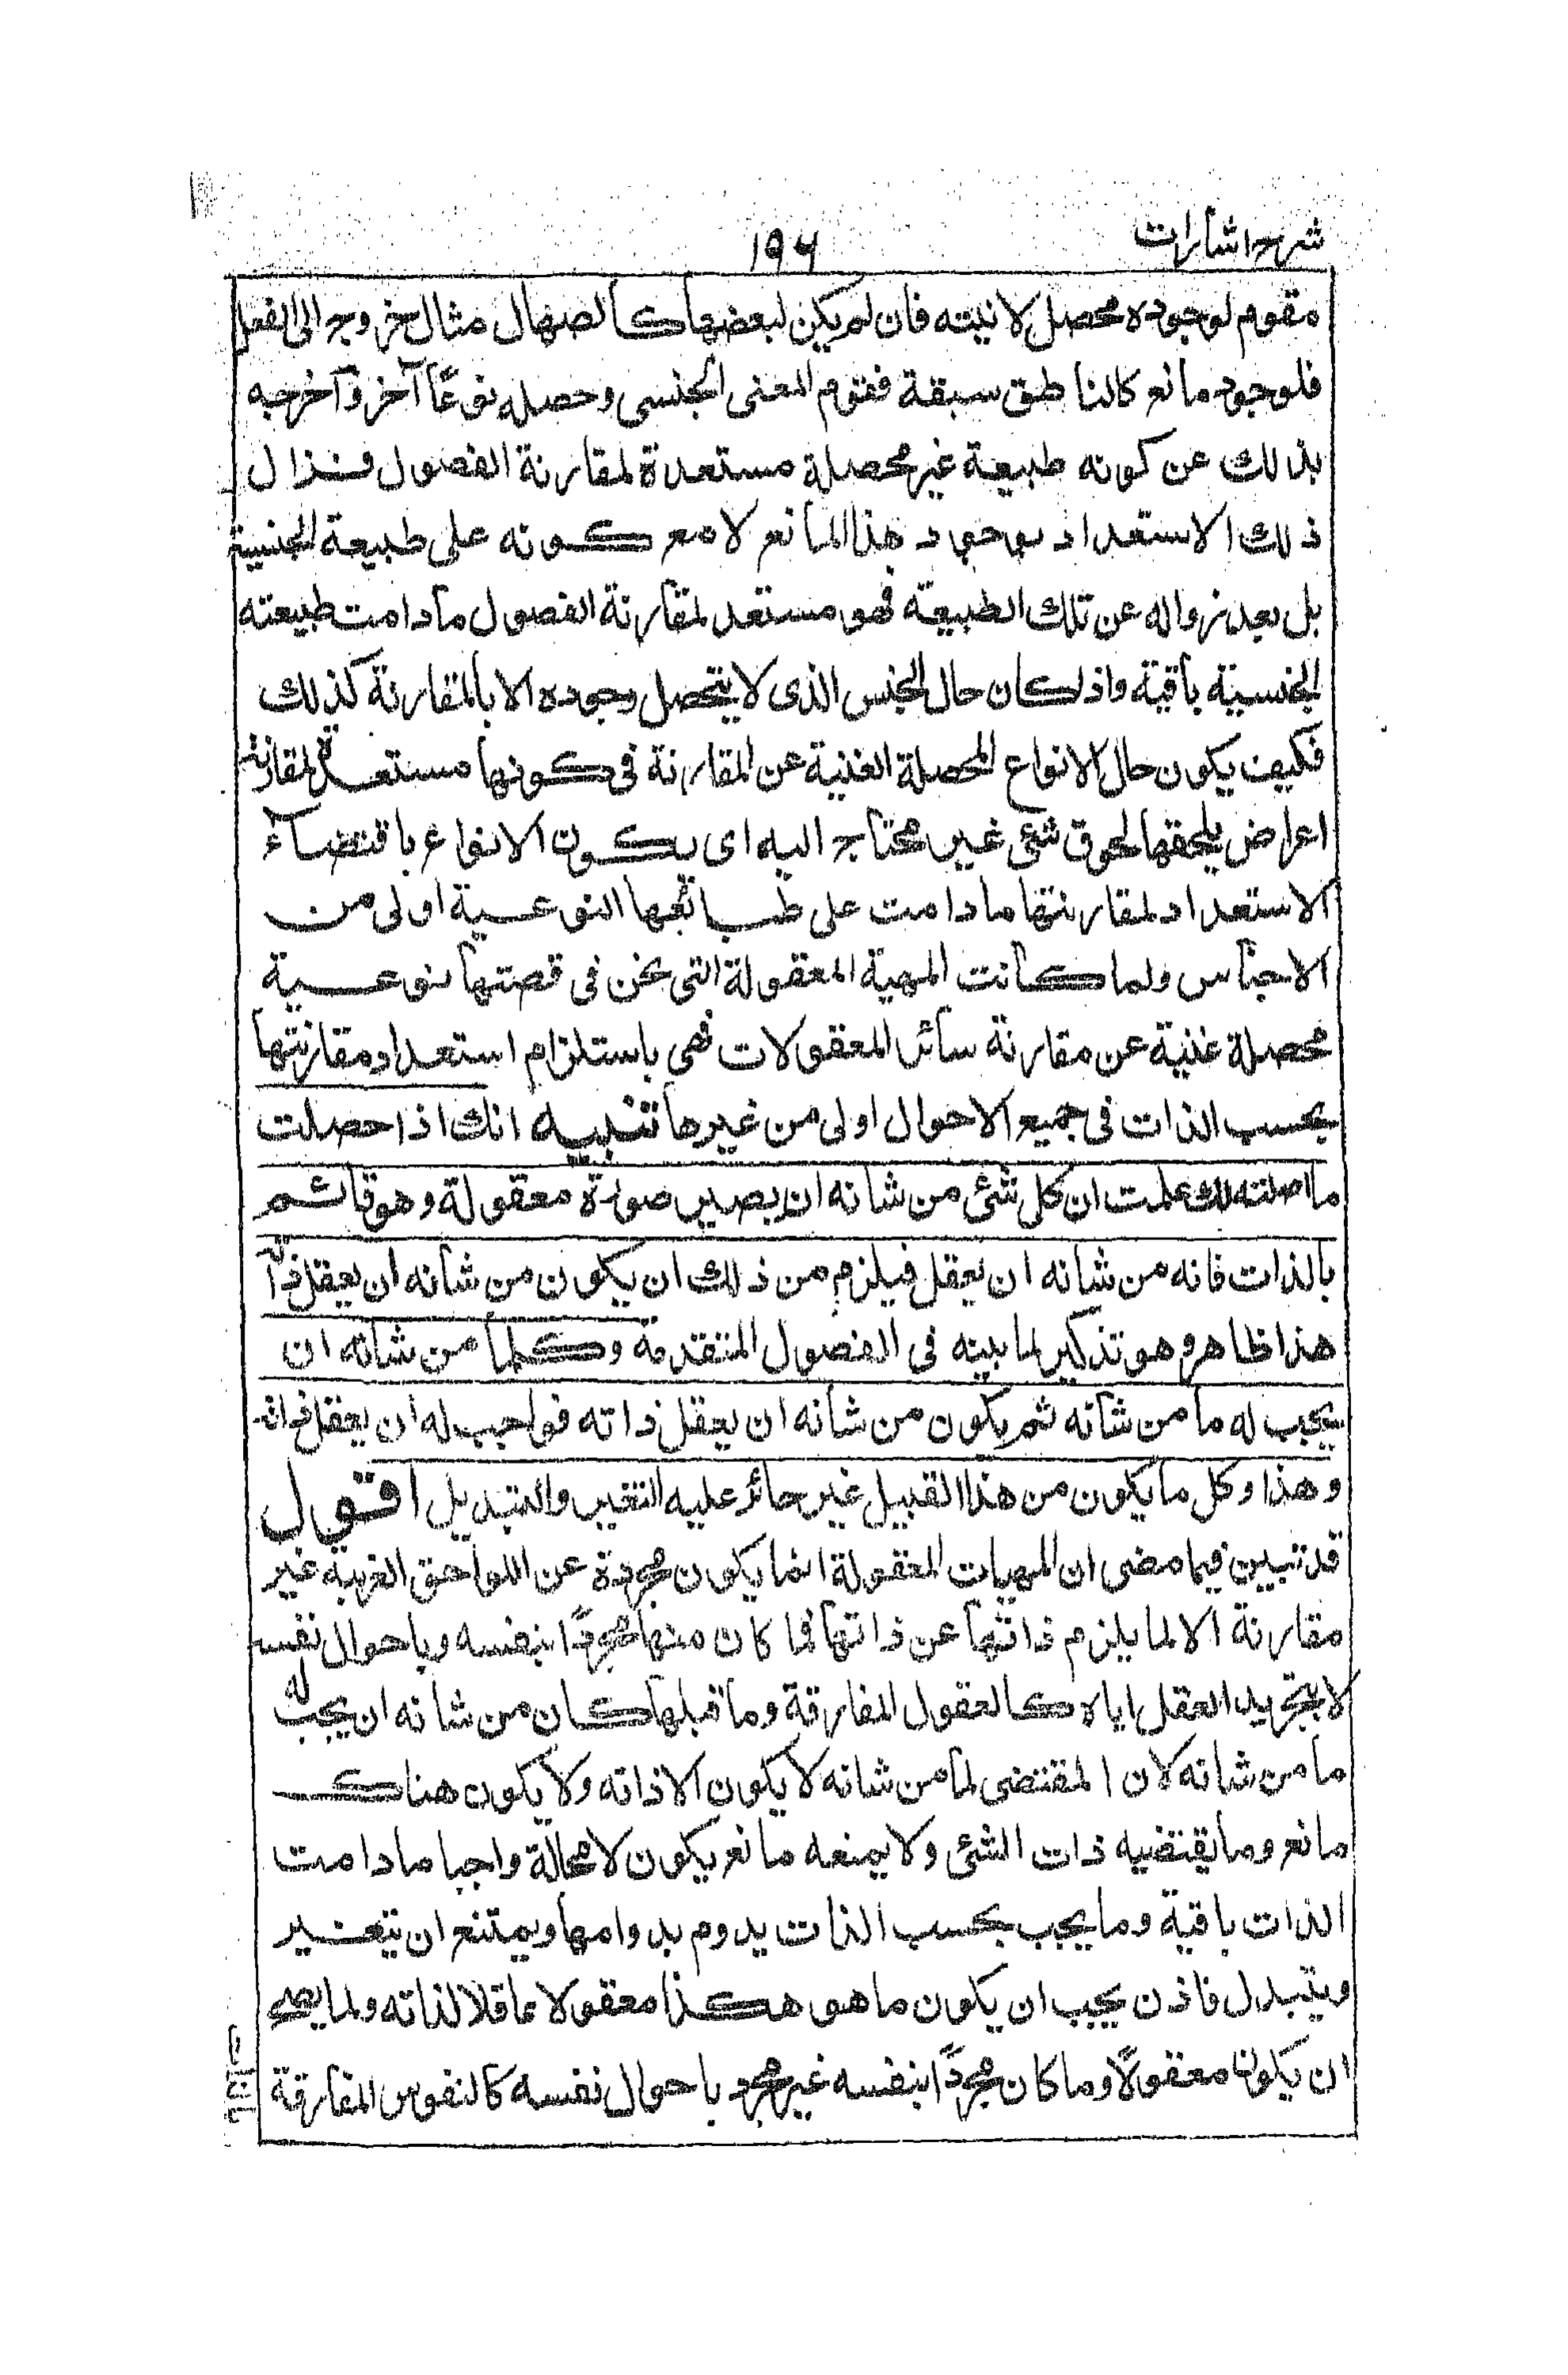 شرح اشارات
١٩٦
مقوم لوجوده محصل لانيته فان لم يكن لبعضها كالصهال مثال خروج الى الفعل
فلوجود مانع كالناطق سبقة فقوم المعنى الجنسى وحصله نوعًا آخر وآخرجه
بذلك عن كونه طبيعة غير محصلة مستعدة لمقارنة الفصول فزال
ذلك الاستعداد بوجود هذا المانع لا مع كونه على طبيعة الجنسية
بل بعد زواله عن تلك الطبيعة فهو مستعد لمقارنة الفصول ما دامت طبيعته
الجنسية باقية واذا كان حال الجنس الذى لا يتحصل وجوده الا بالمقارنة كذلك
فكيف يكون حال الانواع المحصلة الغنية عن المقارنة فى كونها مستعدة لمقارنة
اعراض يلحقها لحوق شئ غير محتاج اليه اى يكون الانواع باقتضاء
الاستعداد لمقارنتها ما دامت على طبائعها النوعية اولى من
الاجناس ولما كانت المهية المعقولة التى نحن فى قصتها نوعية
محصلة غنية عن مقارنة سائر المعقولات فهى باستلزام استعداد مقارنتها
بحسب الذات فى جميع الاحوال اولى من غيرها تنبيه انك اذا حصلت
ما اصلته لك علمت ان كل شئ من شانه ان يصير صورة معقولة وهو قائم
بالذات فانه من شانه ان يعقل فيلزم من ذلك ان يكون من شانه ان يعقل ذاته
هذا ظاهر وهو تذكير لما بينه فى الفصول المتقدمة وكلما من شانه ان
يجب له ما من شانه ثم يكون من شانه ان يعقل ذاته فواجب له ان يعقل ذاته
وهذا وكل ما يكون من هذا القبيل غير جائز عليه التغير والتبديل اقول
قد تبين فيما مضى ان المهيات المعقولة انما يكون مجردة عن اللواحق الغريبه غير
مقارنة الا لما يلزم ذاتها عن ذاتها فما كان منها مجردًا بنفسه وباحوال نفسه
لا بتجريد العقل اياه كالعقول المفارقة وما قبلها كان من شانه ان يجب له
ما من شانه لان المقتضى لما من شانه لا يكون الا ذاته ولا يكون هناك
مانع وما يقتضيه ذات الشئ ولا يمنعه مانع يكون لا محالة واجبا ما دامت
الذات باقية وما يجب بحسب الذات يدوم بدوامها ويمتنع ان يتغير
ويتبدل فاذن يجب ان يكون ما هو هكذا معقولا عاقلا لذاته ولما يصح
ان يكون معقولًا وما كان مجردًا بنفسه غير مجرد باحوال نفسه كالنفوس المفارقة